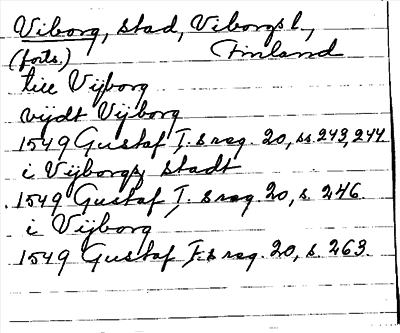 Viborg, stad, Viborgs l.,
(forts.) Finland
till Vijborg
vijdt Vijborg
1549 Gustaf I:s reg. 20, ss. 243, 244
i Vijborgz stadt
1549 Gustaf I:s reg. 20, s. 246.
i Vijborg
1549 Gustaf I:s reg. 20, s. 263.